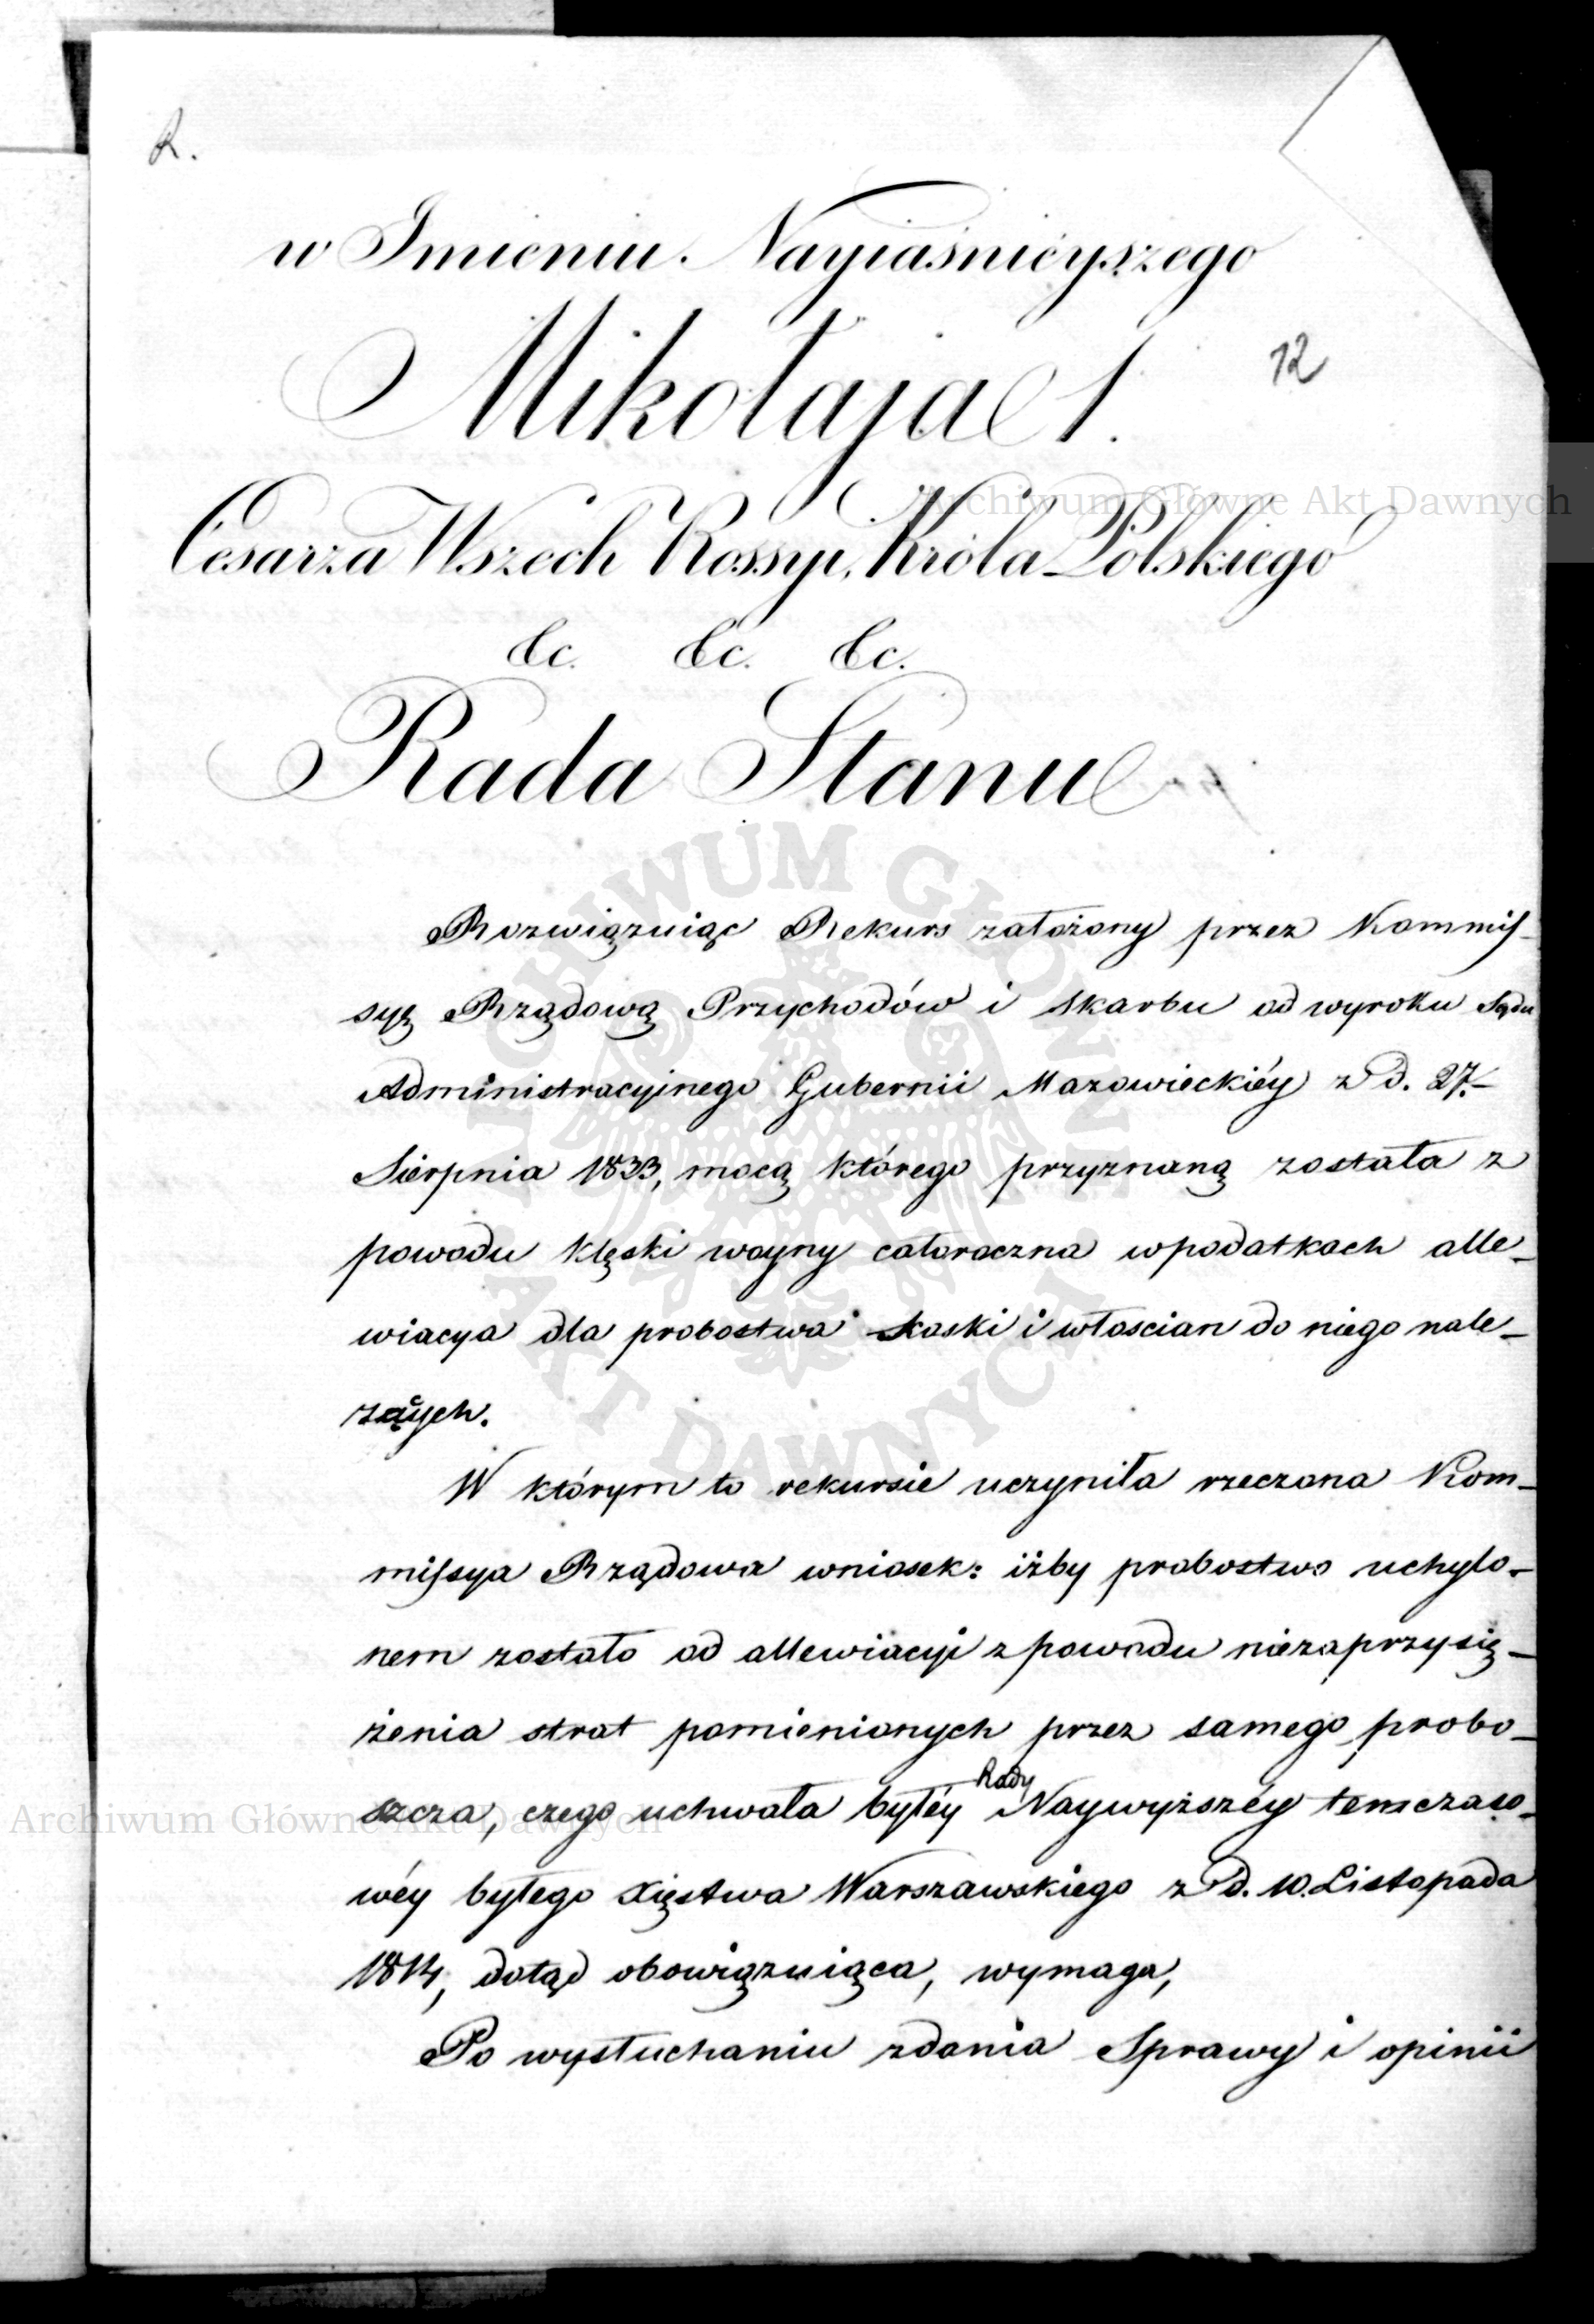 R.
w Imieniu Nayiaśnieyszego
Mikołaja I.
12
Archiwum Główne Akt Dawnych
Cesarza Wszech Rossyi, Króla Polskiego
&c. &c. &c.
Rada Stanu
ARCHIWUM GŁÓWNE AKT DAWNYCH
Rozwiązuiąc Rekurs założony przez Kommis-
syą Rządową Przychodów i Skarbu od wyroku Sądu
Administracyjnego Gubernii Mazowieckiéy z d. 27.
Sierpnia 1833, mocą którego przyznaną została z
powodu klęski woyny całoroczna w podatkach alle-
wiacya dla probostwa Kaski i włoscian do niego nale-
zących.
W którym to rekursie uczyniła rzeczona Kom-
missya Rządowa wniosek: iżby probostwo uchylo-
nem zostało od allewiacyi z powodu niezaprzysię-
żenia strat pomienionych przez samego probo-
szcza, czego uchwała byłéy Rady Naywyższéy temczaso-
wéy byłego Xięstwa Warszawskiego z d. 10. Listopada
1814, dotąd obowiązuiąca, wymaga,
Archiwum Główne Akt Dawnych
Po wysłuchaniu zdania Sprawy i opinii